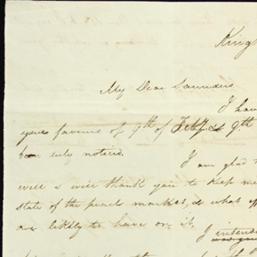 King
My Dear Saunders
I have
your favours of 9th of Feby & 9th
been duly noticed.
I am glad
will & will thank you to keep me
state of the pearl market, & what
are likely to have on it,
I intend